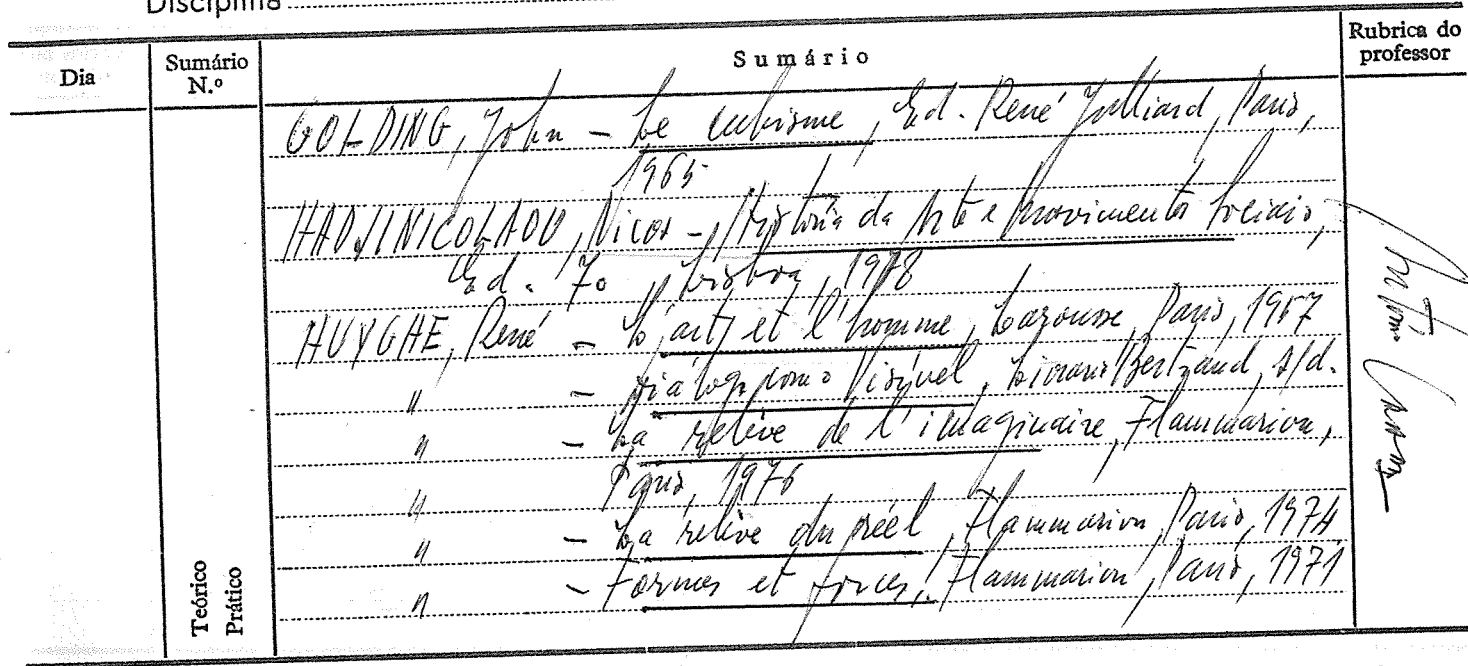 Disciplina
Dia
Sumário N.º
Sumário
Rubrica do professor
GOLDING, John – Le cubisme, Ed. René Julliard, Paris,
1965
HADJINICOLAOU, Nicos – História da Arte e Movimentos Sociais,
Ed. 70, Lisboa, 1978
HUYGHE, René – L'art et l'homme, Larousse, Paris, 1957
" – Diálogo com o Visível, Livraria Bertrand, s/d.
" – La relève de l'imaginaire, Flammarion,
" Paris, 1976
" – La relève du réel, Flammarion, Paris, 1974
" – Formes et forces, Flammarion, Paris, 1971
Teórico
Prático